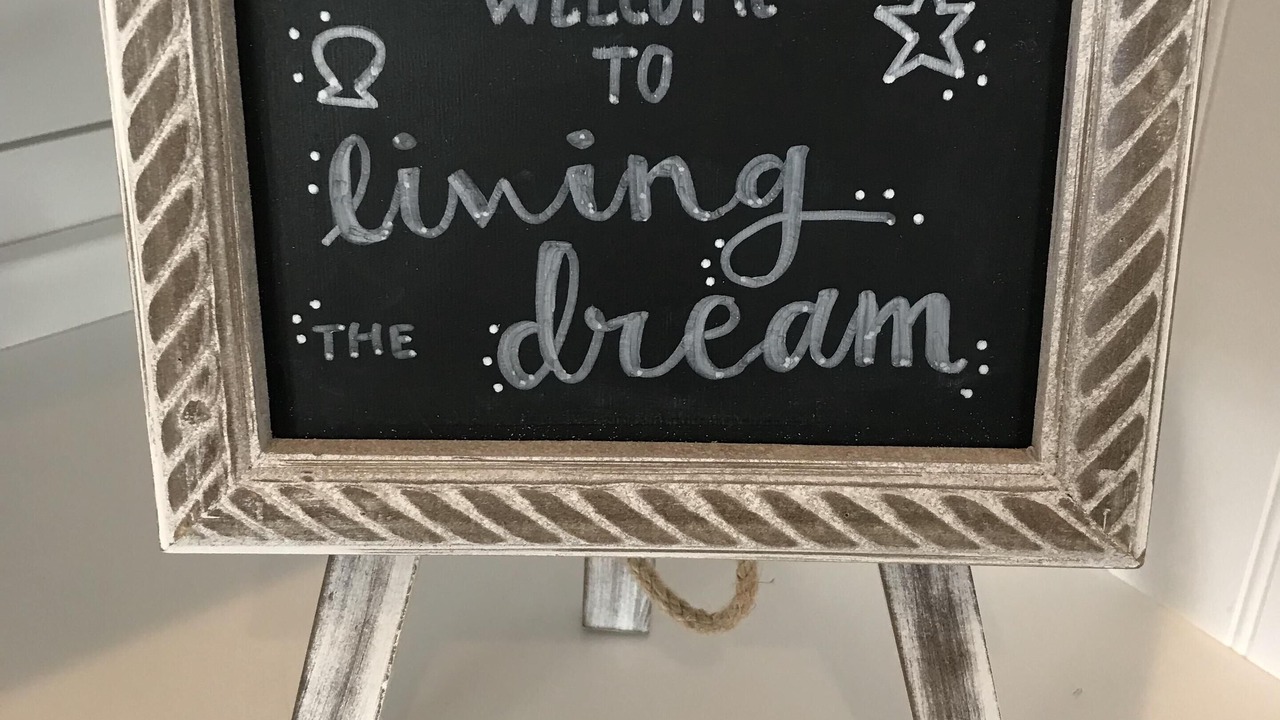 WELCOME
TO
living
THE dream